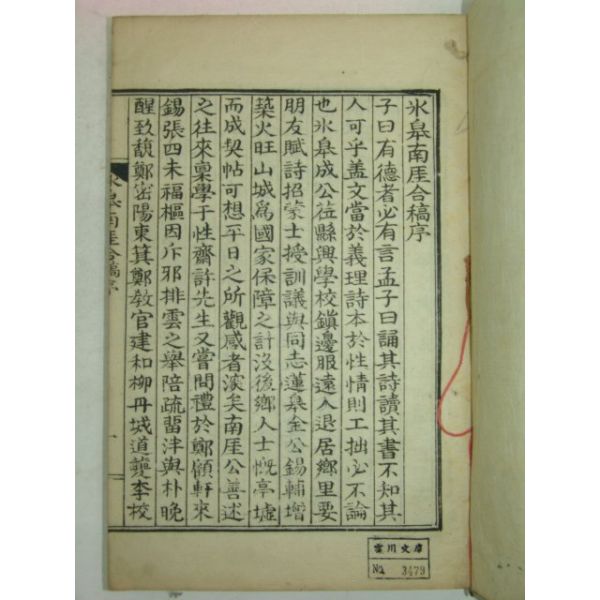 氷皐南厓合稿序
子曰有德者必有言孟子曰誦其詩讀其書不知其
人可乎盖文當於義理詩本於性情則工拙必不論
也氷皐成公莅縣興學校鎭邊服遠人退居鄕里要
朋友賦詩招蒙士授訓議與同志蓮皐金公錫輔增
築火旺山城爲國家保障之計沒後鄕人士慨亭墟
而成契帖可想平日之所觀感者深矣南厓公善述
之往來稟學于性齋許先生又嘗問禮於鄭顧軒來
錫張四未福樞因斥邪排雲之舉陪疏留泮與朴晚
醒致馥鄭密陽東箕鄭敎官建和柳丹城道夔李校
氷皐南厓合稿序
一
雲川文庫
No. 3479